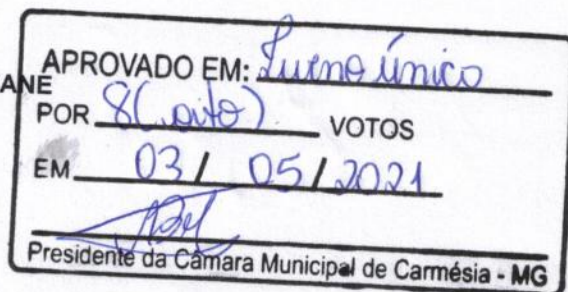 APROVADO EM: Turno único
ANE
POR 8 (oito) VOTOS
EM 03 / 05 / 2021
Presidente da Câmara Municipal de Carmésia - MG